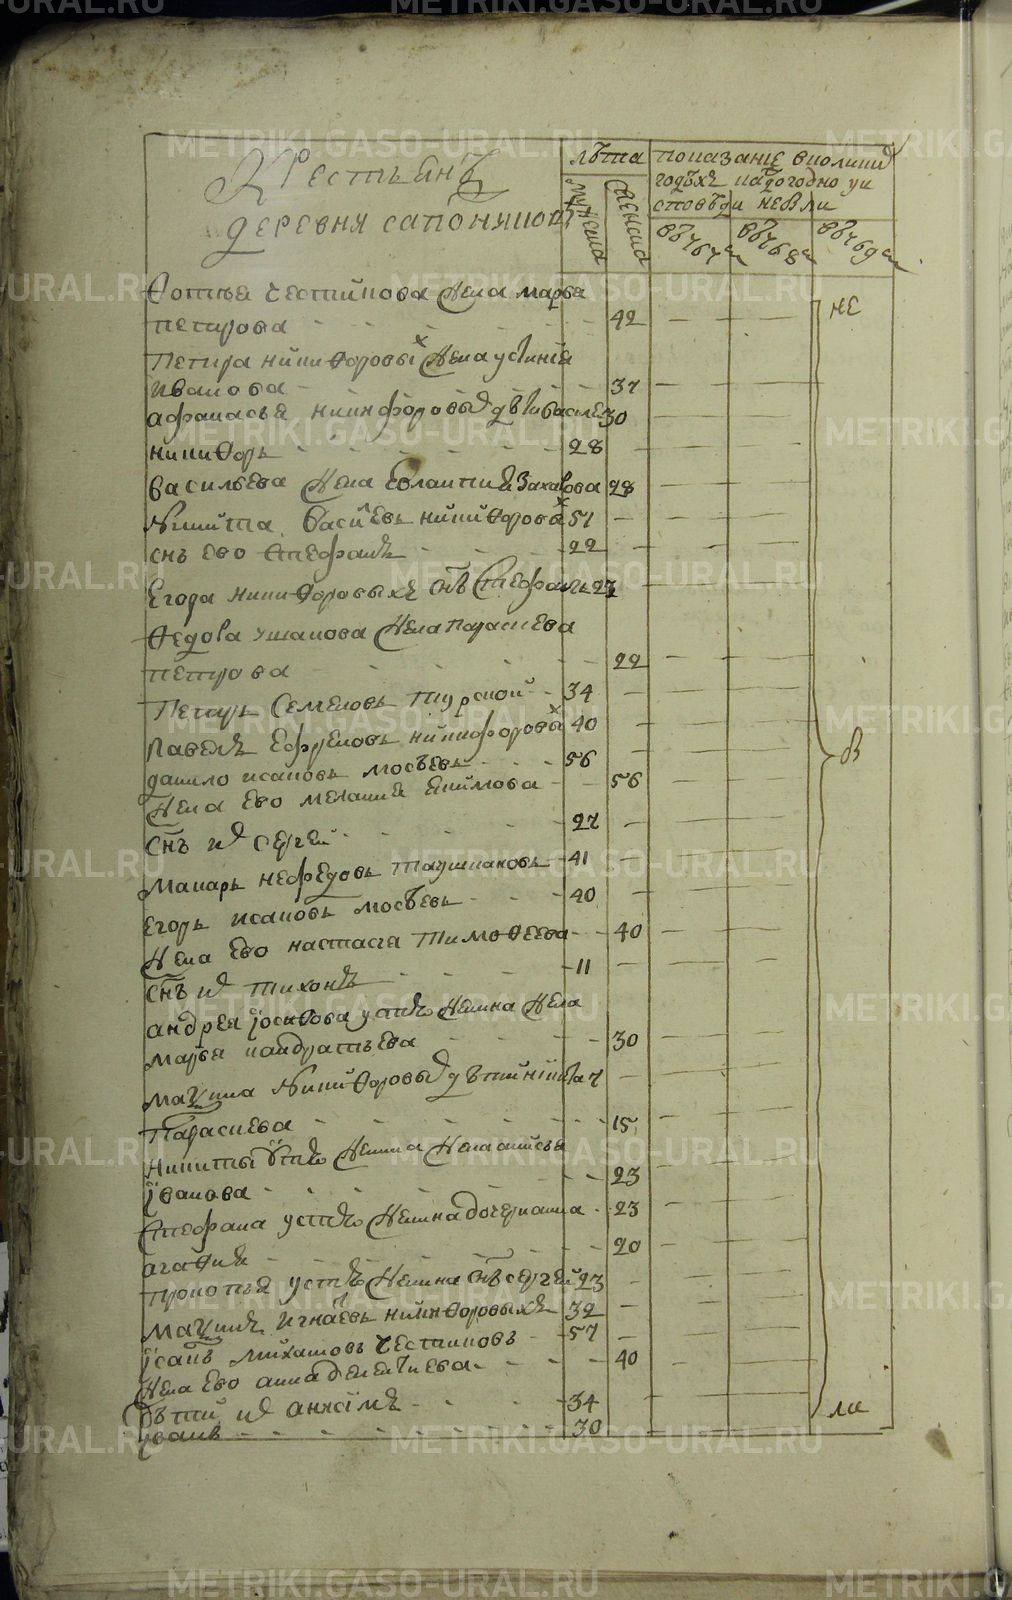 METRIKI.GASO-URAL.RU
Крестьянъ
деревня сапонинои
лѣта
мужеска
женска
показание вколики
годѣхъ надогодно уи
споведи небыли
въ 767м
въ 768м
въ 769м
Фотѣя честикова жена марья
петрова 42
Петра никифоровых жена устиния
иванова 37
афанасья никифоровы дѣти василей 30
никифоръ 28
васильева жена евлампия захарова 28
Никита васильевъ никифоровых 51
снъ ево стефанъ 22
Егора никифоровыхъ снъ стефанъ 27
Федора ушакова жена параскева
петрова 22
Петръ Семеновъ турской 34
Павелъ ефремовъ никифоровых 40
данило исаковъ мосѣевъ 56
жена ево мелания екимова 56
снъ их сергей 27
Макаръ нефедовъ таушканковъ 41
Егоръ исаковъ мосѣевъ 40
жена ево настасия тимофеева 40
снъ их тихонъ 11
андрея иосифова устюжанина жена
марья кондратьева 30
Максима никифоровы дѣти никита 7
Параскева 15
Никиты устюжанина жена анисья
иванова 23
Стефана устюжанина дочери анна 23
агафия 20
Прокопья устюжанина снъ сергей 23
Максимъ игнатьевъ никифоровыхъ 32
исакъ михаиловъ честиковъ 57
жена ево анна дементиева 40
дѣти их анисимъ 34
иванъ 30
не
в
ли